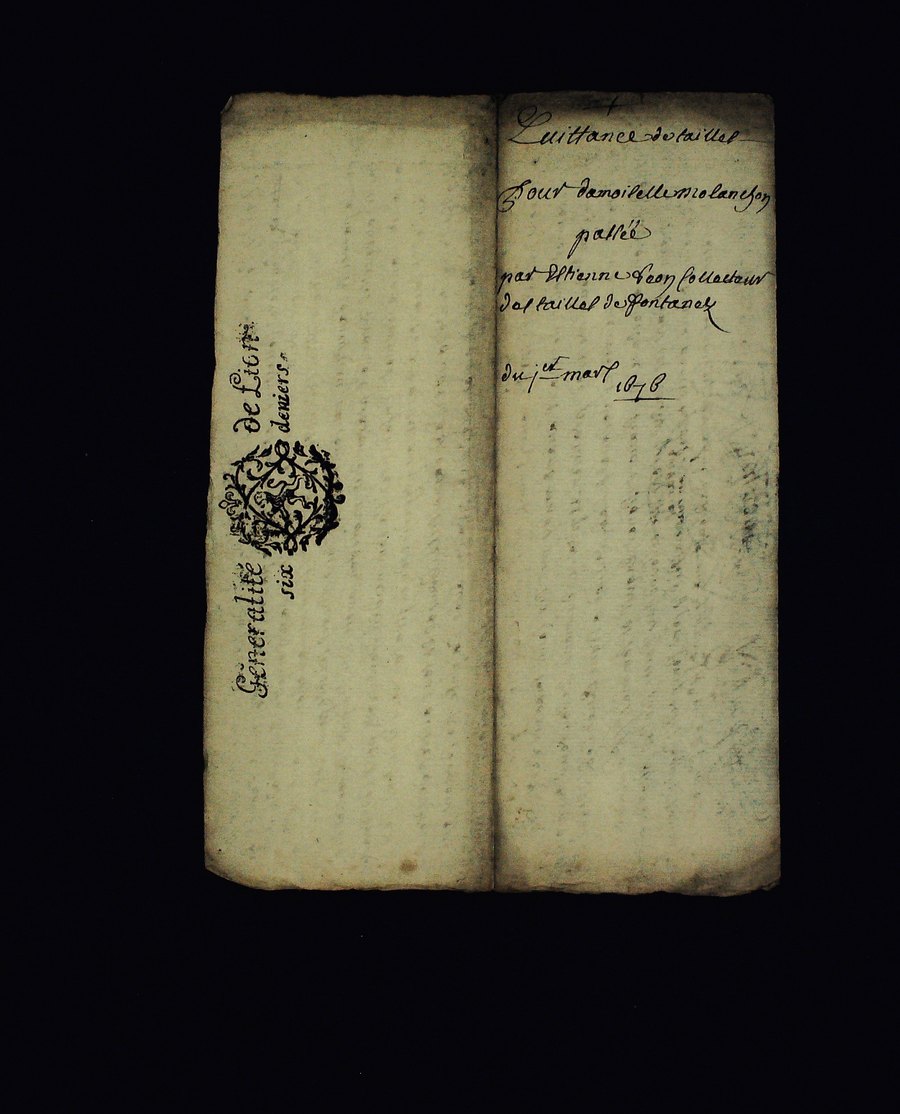 Generalité de Lion
six deniers.
Quittance de tailles
Pour damoiselle molanchon
passéé
par Estienne Veon Collecteur
des tailles de fontanez
du jer mars 1676